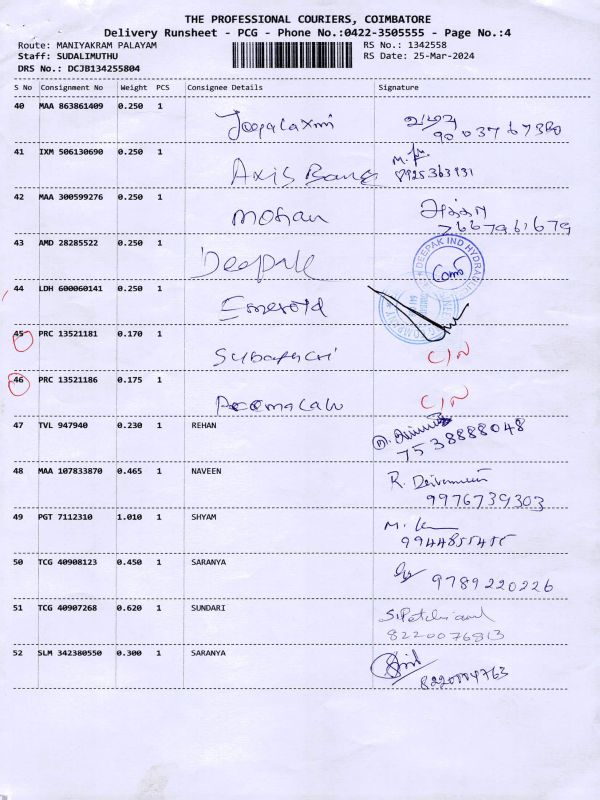 THE PROFESSIONAL COURIERS, COIMBATORE
Delivery Runsheet - PCG - Phone No.:0422-3505555 - Page No.:4
Route: MANIYAKRAM PALAYAM RS No.: 1342558
Staff: SUDALIMUTHU RS Date: 25-Mar-2024
DRS No.: DCJB134255804
S No Consignment No Weight PCS Consignee Details Signature
40 MAA 863861409 0.250 1
41 IXM 506130690 0.250 1 Axis Bank
8925363931
42 MAA 300599276 0.250 1 mohan
7667961679
43 AMD 28285522 0.250 1 Deepak DEEPAK IND HYDRAULIC
44 LDH 600060141 0.250 1
45 PRC 13521181 0.170 1 C/N
46 PRC 13521186 0.175 1 C/N
47 TVL 947940 0.230 1 REHAN
7538888048
48 MAA 107833870 0.465 1 NAVEEN
9976739303
49 PGT 7112310 1.010 1 SHYAM
9944855455
50 TCG 40908123 0.450 1 SARANYA 9789220226
51 TCG 40907268 0.620 1 SUNDARI
8220076813
52 SLM 342380550 0.300 1 SARANYA